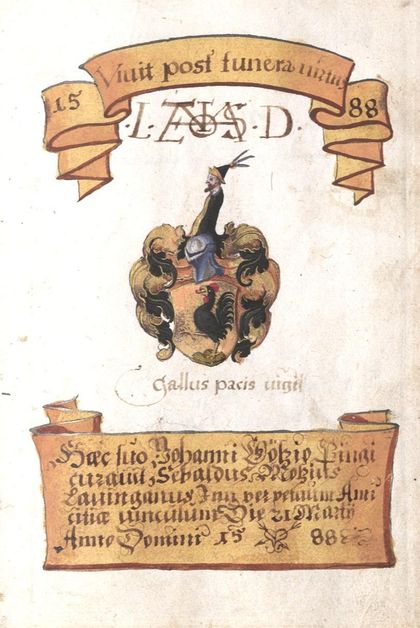 Vivit post funera virtus
15 88
Gallus pacis vigil
Haec suo Johanni Pingi
curavit Sebaldus
Lavinganus In perpetuum Ami
citiae vinculum Die 21 Martij
Anno Domini 15 88